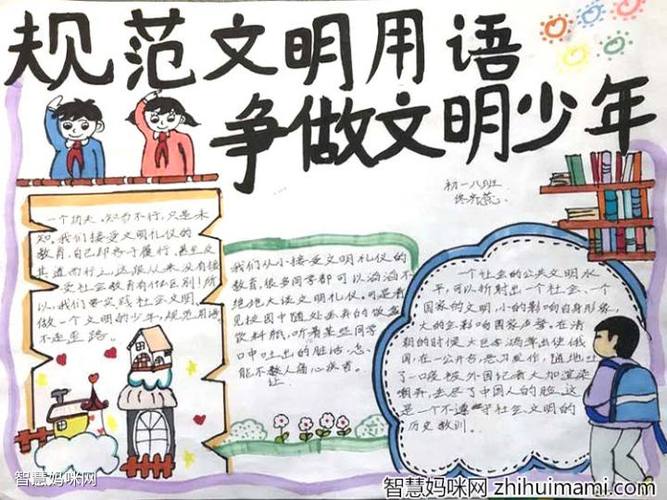 规范文明用语
争做文明少年
初一八班
一个功夫,知而不行,只是未
知。我们接受文明礼仪的
教育,自己却吝于履行,甚至反
其道而行之,这跟从来没有接
受社会教育有什么区别!所
以,我们要实践社会文明,
做一个文明的少年,规范用语
不走歪路。
我们从小接受文明礼仪的
教育,很多同学都可以滔滔不
绝地大谈文明礼仪,可是看
见校园中随处丢弃的饭盒
饮料瓶,听着某些同学
口中吐出的脏话,怎
能不令人痛心疾首。
让
一个社会的公共文明水
平,可以折射出一个社会、一个
国家的文明,小的影响自身形象,
大的会影响国家声誉。在清
朝的时候,大臣李鸿章出使俄
国,在一公开场,恶习发作,随地吐
了一口痰,被外国记者大加渲染
嘲弄,丢尽了中国人的脸。这
是一个不遵守社会文明的
历史教训。
智慧妈咪网
智慧妈咪网 zhihuimami.com